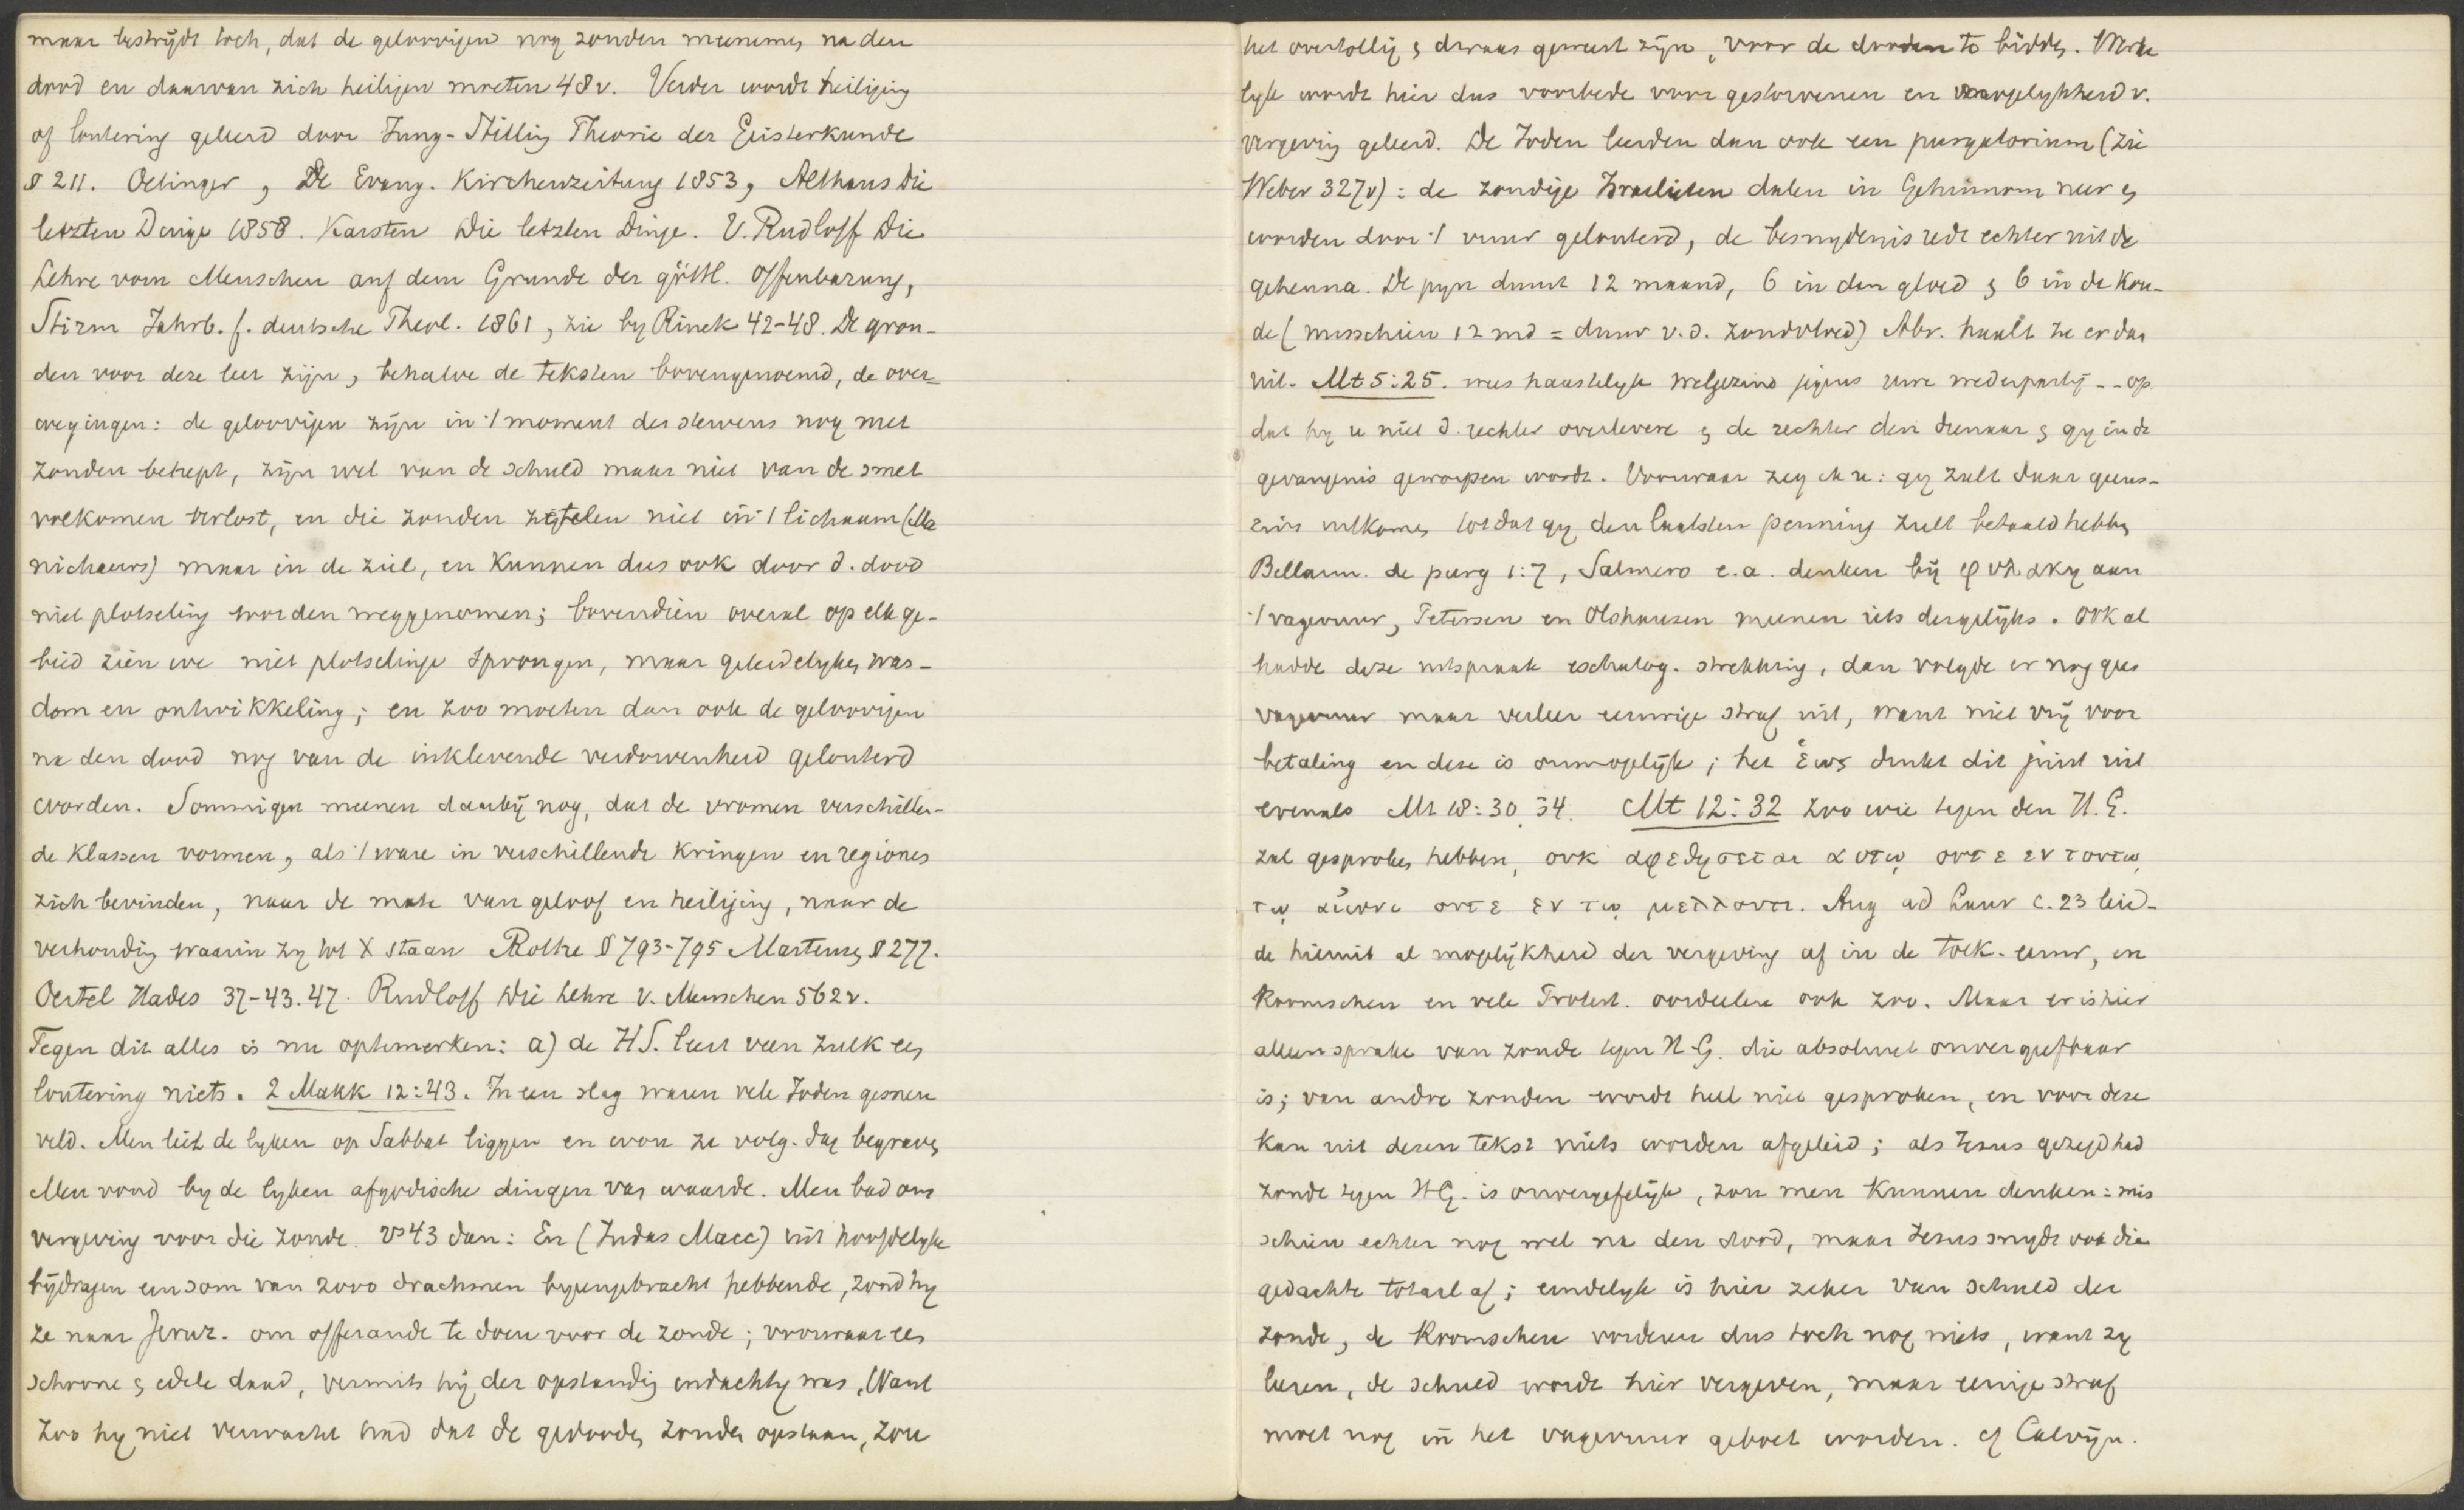 maar bestrijdt toch, dat de geloovigen nog zonden meenemen na den
dood en daarvan zich heiligen moeten 48v. Verder wordt heiliging
of loutering geleerd door Jung-Stilling Theorie der Geisterkunde
§ 211. Oetinger, De Evang. Kirchenzeitung 1853, Althaus Die
letzten Dinge 1858. Karsten Die letzten Dinge. V. Rudloff Die
Lehre vom Menschen auf dem Grunde der göttl. Offenbarung,
Stirm Jahrb. f. deutsche Theol. 1861, zie by Rinck 42-48. De gron-
den voor deze leer zijn, behalve de teksten bovengenoemd, de over-
wegingen: de geloovigen zijn in 't moment des stervens nog met
zonden behept, zijn wel van de schuld maar niet van de smet
volkomen verlost, en die zonden zetelen niet in 't lichaam (Ma
nichaeers) maar in de ziel, en kunnen dus ook door d. dood
niet plotseling worden weggenomen; bovendien overal op elk ge-
bied zien we niet plotselinge sprongen, maar geleidelyken was-
dom en ontwikkeling; en zoo moeten dan ook de geloovigen
na den dood nog van de inklevende verdorvenheid gelouterd
worden. Sommigen meenen daarbij nog, dat de vromen verschillen-
de klassen vormen, als 't ware in verschillende kringen en regiones
zich bevinden, naar de mate van geloof en heiliging, naar de
verhouding waarin zy tot X staan Rothe § 793-795 Martensen § 277.
Oertel Hades 37-43.47. Rudloff Die Lehre v. Menschen 562v.
Tegen dit alles is nu optemerken: a) de HS. leert van zulk een
loutering niets. 2 Makk 12:43. In een slag waren vele Joden gesneu
veld. Men liet de lyken op Sabbat liggen en wou ze volg. dag begraven
Men vond by de lyken afgodische dingen van waarde. Men bad om
vergeving voor die zonde. vs 43 dan: En (Judas Macc) uit hoofdelyke
bijdragen een som van 2000 drachmen byeengebracht hebbende, zond hy
ze naar Jeruz. om offerande te doen voor de zonde; voorwaar een
schoone & edele daad, vermits hij der opstanding indachtig was, Want
zoo hy niet verwacht had dat de gedooden zouden opstaan, zou
het overtollig & dwaas geweest zijn, voor de dooden te bidden. Werke
lyk wordt hier dus voorbede voor gestorvenen en mogelykheid v.
vergeving geleerd. De Joden leerden dan ook een purgatorium (zie
Weber 327v): de zondige Israelieten dalen in Gehinnom neer &
worden door 't vuur gelouterd, de besnydenis redt echter uit de
gehenna. De pyn duurt 12 maand, 6 in den gloed & 6 in de kou-
de (misschien 12 md = duur v.d. zondvloed) Abr. haalt ze er dan
uit. Mt 5:25. wees haastelyk welgezind jegens uwe wederpartij -- op
dat hy u niet d. rechter overlevere & de rechter den dienaar & gy in de
gevangenis geworpen wordt. Voorwaar zeg ik u: gy zult daar geens-
zins uitkomen totdat gy den laatsten penning zult betaald hebben
Bellarm. de purg 1:7, Salmero e.a. denken bij φυλακη aan
't vagevuur, Petersen en Olshausen meenen iets dergelijks. Ook al
hadde deze uitspraak eschatolog. strekking, dan volgde er nog geen
vagevuur maar veeleer eeuwige straf uit, want niet vrij voor
betaling en deze is onmogelijk; het ἑως drukt dit juist uit
evenals Mt 18:30.34. Mt 12:32 zoo wie tegen den H.G.
zal gesproken hebben, ουκ αφεθησεται αυτῳ ουτε εν τουτῳ
τῳ αἰωνι ουτε εν τῳ μελλοντι. Aug ad Laur c. 23 leid-
de hieruit al mogelijkheid der vergeving af in de toek. eeuw, en
Roomschen en vele Protest. oordeelen ook zoo. Maar er is hier
alleen sprake van zonde tegen H.G. die absoluut onvergeefbaar
is; van andre zonden wordt heel niet gesproken, en voor deze
kan uit dezen tekst niets worden afgeleid; als Jezus gezegd had
zonde tegen HG. is onvergefelijk, zou men kunnen denken: mis
schien echter nog wel na den dood, maar Jezus snydt ook die
gedachte totaal af; eindelyk is hier zeker van schuld der
zonde, de Roomschen vorderen dus toch nog niets, want zy
leeren, de schuld wordt hier vergeven, maar eenige straf
moet nog in het vagevuur geboet worden. cf Calvijn.